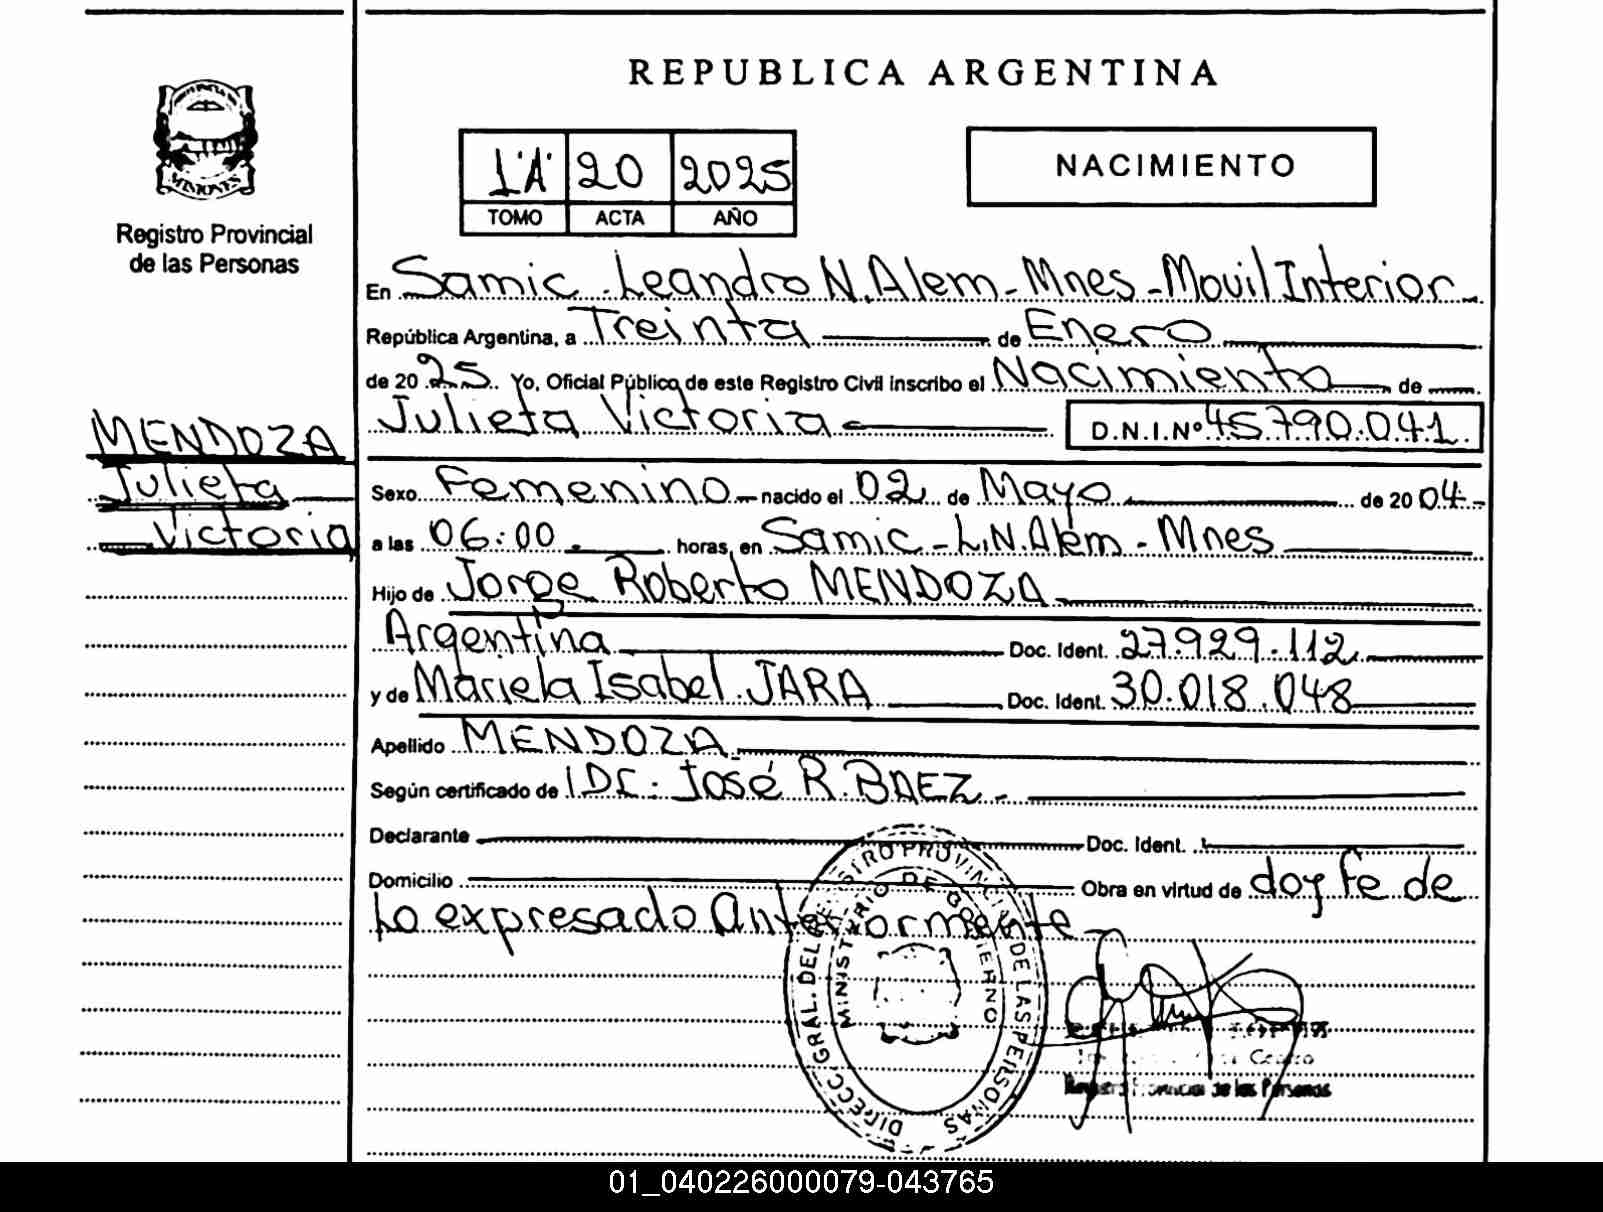 REPUBLICA ARGENTINA
PROVINCIA DE
MISIONES
Registro Provincial
de las Personas
1'A' 20 2025
TOMO ACTA AÑO
NACIMIENTO
En Samic - Leandro N. Alem - Mnes - Movil Interior
República Argentina, a Treinta de Enero
de 2025 Yo, Oficial Público de este Registro Civil inscribo el Nacimiento de
Julieta Victoria D.N.I.Nº 45.790.041.
MENDOZA
Julieta
Victoria
Sexo Femenino nacido el 02 de Mayo de 2004
a las 06:00 horas, en Samic - L.N. Alem - Mnes
Hijo de Jorge Roberto MENDOZA
Argentina Doc. Ident. 27.929.112
y de Mariela Isabel JARA Doc. Ident. 30.018.048
Apellido MENDOZA
Según certificado de José R. BAEZ
Declarante Doc. Ident.
Domicilio Obra en virtud de doy fe de
Lo expresado Anteriormente
DIRECC. GRAL. DEL REGISTRO PROVINCIAL DE LAS PERSONAS
MINISTERIO DE GOBIERNO
Registro Provincial de las Personas
01_040226000079-043765